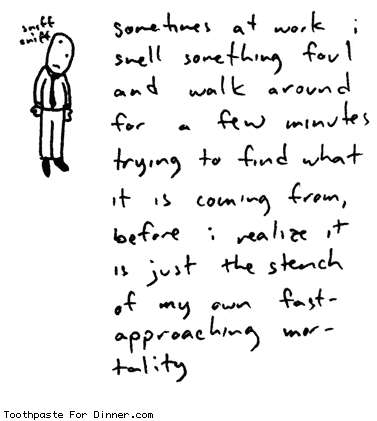 sniff
sniff
sometimes at work i
smell something foul
and walk around
for a few minutes
trying to find what
it is coming from,
before i realize it
is just the stench
of my own fast-
approaching mor-
tality
Toothpaste For Dinner.com